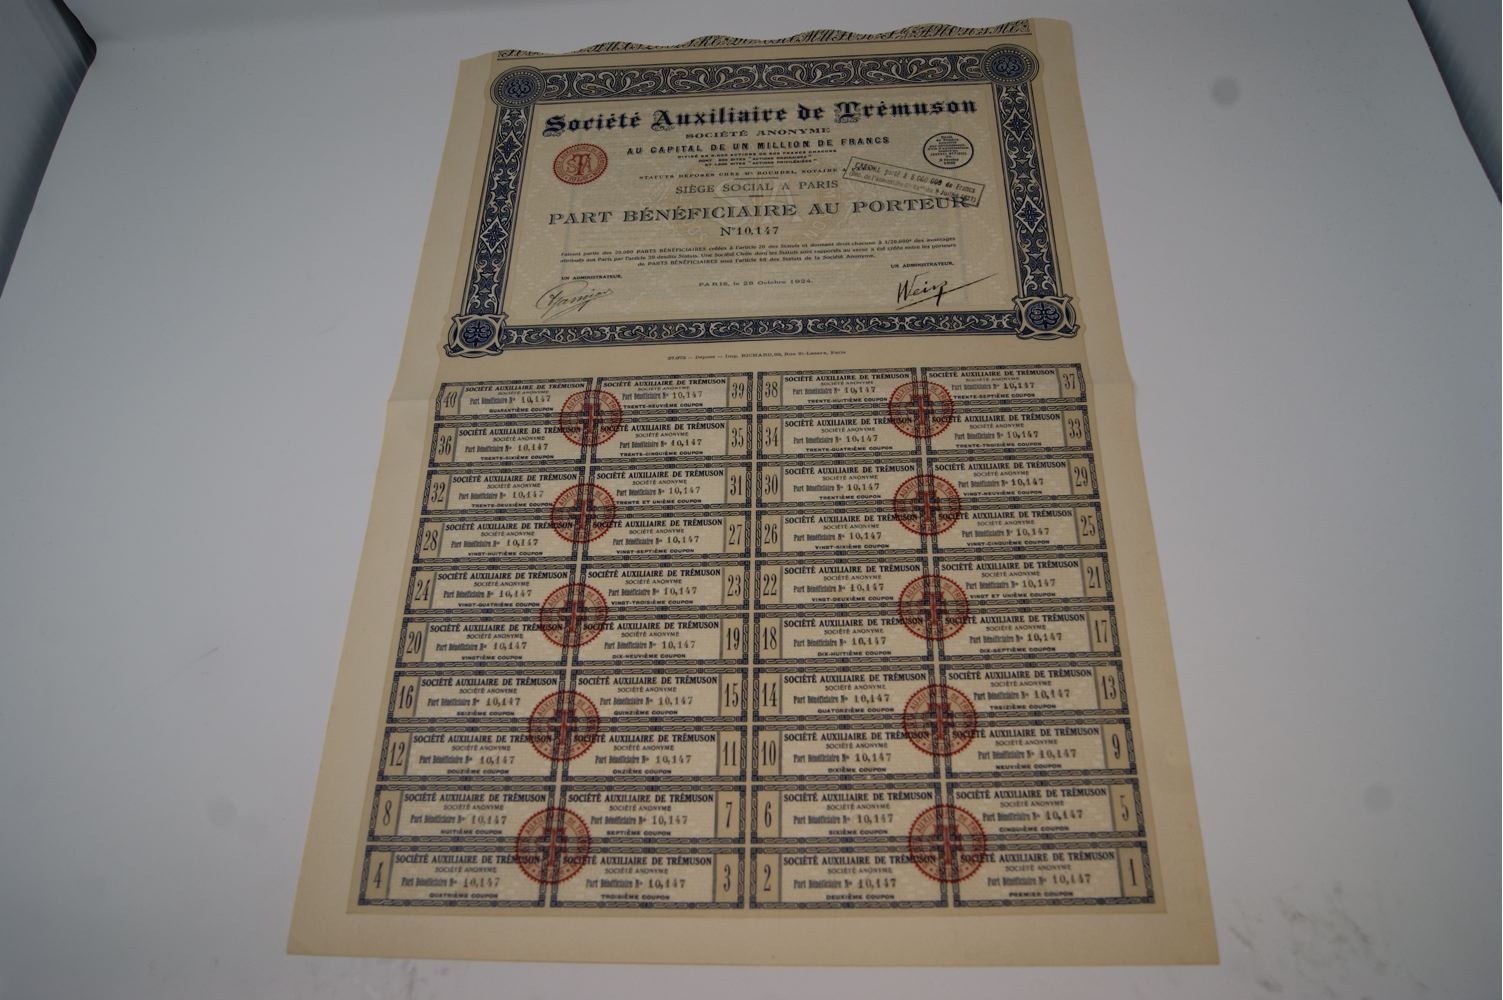 Société Auxiliaire de Trémuson
SOCIÉTÉ ANONYME
AU CAPITAL DE UN MILLION DE FRANCS
STATUTS DÉPOSÉS CHEZ Me BOURDEL, NOTAIRE A
CAPITAL porté à 5.000.000 de Francs
SIÈGE SOCIAL A PARIS
PART BÉNÉFICIAIRE AU PORTEUR
No 10,147
Faisant partie des 20.000 PARTS BÉNÉFICIAIRES créées à l'article 20 des Statuts et donnant droit chacune à 1/20.000e des avantages
attribués aux Parts par l'article 39 desdits Statuts. Une Société Civile dont les Statuts sont rapportés au verso a été créée entre les porteurs
de PARTS BÉNÉFICIAIRES sous l'article 48 des Statuts de la Société Anonyme.
UN ADMINISTRATEUR, UN ADMINISTRATEUR,
PARIS, le 28 Octobre 1924.
Imp. RICHARD, Rue St-Lazare, Paris
40 SOCIÉTÉ AUXILIAIRE DE TRÉMUSON SOCIÉTÉ AUXILIAIRE DE TRÉMUSON 39 38 SOCIÉTÉ AUXILIAIRE DE TRÉMUSON SOCIÉTÉ AUXILIAIRE DE TRÉMUSON 37
SOCIÉTÉ ANONYME SOCIÉTÉ ANONYME SOCIÉTÉ ANONYME SOCIÉTÉ ANONYME
Part Bénéficiaire No 10,147 Part Bénéficiaire No 10,147 Part Bénéficiaire No 10,147 Part Bénéficiaire No 10,147
QUARANTIÈME COUPON TRENTE-NEUVIÈME COUPON TRENTE-HUITIÈME COUPON TRENTE-SEPTIÈME COUPON
36 SOCIÉTÉ AUXILIAIRE DE TRÉMUSON SOCIÉTÉ AUXILIAIRE DE TRÉMUSON 35 34 SOCIÉTÉ AUXILIAIRE DE TRÉMUSON SOCIÉTÉ AUXILIAIRE DE TRÉMUSON 33
SOCIÉTÉ ANONYME SOCIÉTÉ ANONYME SOCIÉTÉ ANONYME SOCIÉTÉ ANONYME
Part Bénéficiaire No 10,147 Part Bénéficiaire No 10,147 Part Bénéficiaire No 10,147 Part Bénéficiaire No 10,147
TRENTE-SIXIÈME COUPON TRENTE-CINQUIÈME COUPON TRENTE-QUATRIÈME COUPON TRENTE-TROISIÈME COUPON
32 SOCIÉTÉ AUXILIAIRE DE TRÉMUSON SOCIÉTÉ AUXILIAIRE DE TRÉMUSON 31 30 SOCIÉTÉ AUXILIAIRE DE TRÉMUSON SOCIÉTÉ AUXILIAIRE DE TRÉMUSON 29
SOCIÉTÉ ANONYME SOCIÉTÉ ANONYME SOCIÉTÉ ANONYME SOCIÉTÉ ANONYME
Part Bénéficiaire No 10,147 Part Bénéficiaire No 10,147 Part Bénéficiaire No 10,147 Part Bénéficiaire No 10,147
TRENTE-DEUXIÈME COUPON TRENTE ET UNIÈME COUPON TRENTIÈME COUPON VINGT-NEUVIÈME COUPON
28 SOCIÉTÉ AUXILIAIRE DE TRÉMUSON SOCIÉTÉ AUXILIAIRE DE TRÉMUSON 27 26 SOCIÉTÉ AUXILIAIRE DE TRÉMUSON SOCIÉTÉ AUXILIAIRE DE TRÉMUSON 25
SOCIÉTÉ ANONYME SOCIÉTÉ ANONYME SOCIÉTÉ ANONYME SOCIÉTÉ ANONYME
Part Bénéficiaire No 10,147 Part Bénéficiaire No 10,147 Part Bénéficiaire No 10,147 Part Bénéficiaire No 10,147
VINGT-HUITIÈME COUPON VINGT-SEPTIÈME COUPON VINGT-SIXIÈME COUPON VINGT-CINQUIÈME COUPON
24 SOCIÉTÉ AUXILIAIRE DE TRÉMUSON SOCIÉTÉ AUXILIAIRE DE TRÉMUSON 23 22 SOCIÉTÉ AUXILIAIRE DE TRÉMUSON SOCIÉTÉ AUXILIAIRE DE TRÉMUSON 21
SOCIÉTÉ ANONYME SOCIÉTÉ ANONYME SOCIÉTÉ ANONYME SOCIÉTÉ ANONYME
Part Bénéficiaire No 10,147 Part Bénéficiaire No 10,147 Part Bénéficiaire No 10,147 Part Bénéficiaire No 10,147
VINGT-QUATRIÈME COUPON VINGT-TROISIÈME COUPON VINGT-DEUXIÈME COUPON VINGT ET UNIÈME COUPON
20 SOCIÉTÉ AUXILIAIRE DE TRÉMUSON SOCIÉTÉ AUXILIAIRE DE TRÉMUSON 19 18 SOCIÉTÉ AUXILIAIRE DE TRÉMUSON SOCIÉTÉ AUXILIAIRE DE TRÉMUSON 17
SOCIÉTÉ ANONYME SOCIÉTÉ ANONYME SOCIÉTÉ ANONYME SOCIÉTÉ ANONYME
Part Bénéficiaire No 10,147 Part Bénéficiaire No 10,147 Part Bénéficiaire No 10,147 Part Bénéficiaire No 10,147
VINGTIÈME COUPON DIX-NEUVIÈME COUPON DIX-HUITIÈME COUPON DIX-SEPTIÈME COUPON
16 SOCIÉTÉ AUXILIAIRE DE TRÉMUSON SOCIÉTÉ AUXILIAIRE DE TRÉMUSON 15 14 SOCIÉTÉ AUXILIAIRE DE TRÉMUSON SOCIÉTÉ AUXILIAIRE DE TRÉMUSON 13
SOCIÉTÉ ANONYME SOCIÉTÉ ANONYME SOCIÉTÉ ANONYME SOCIÉTÉ ANONYME
Part Bénéficiaire No 10,147 Part Bénéficiaire No 10,147 Part Bénéficiaire No 10,147 Part Bénéficiaire No 10,147
SEIZIÈME COUPON QUINZIÈME COUPON QUATORZIÈME COUPON TREIZIÈME COUPON
12 SOCIÉTÉ AUXILIAIRE DE TRÉMUSON SOCIÉTÉ AUXILIAIRE DE TRÉMUSON 11 10 SOCIÉTÉ AUXILIAIRE DE TRÉMUSON SOCIÉTÉ AUXILIAIRE DE TRÉMUSON 9
SOCIÉTÉ ANONYME SOCIÉTÉ ANONYME SOCIÉTÉ ANONYME SOCIÉTÉ ANONYME
Part Bénéficiaire No 10,147 Part Bénéficiaire No 10,147 Part Bénéficiaire No 10,147 Part Bénéficiaire No 10,147
DOUZIÈME COUPON ONZIÈME COUPON DIXIÈME COUPON NEUVIÈME COUPON
8 SOCIÉTÉ AUXILIAIRE DE TRÉMUSON SOCIÉTÉ AUXILIAIRE DE TRÉMUSON 7 6 SOCIÉTÉ AUXILIAIRE DE TRÉMUSON SOCIÉTÉ AUXILIAIRE DE TRÉMUSON 5
SOCIÉTÉ ANONYME SOCIÉTÉ ANONYME SOCIÉTÉ ANONYME SOCIÉTÉ ANONYME
Part Bénéficiaire No 10,147 Part Bénéficiaire No 10,147 Part Bénéficiaire No 10,147 Part Bénéficiaire No 10,147
HUITIÈME COUPON SEPTIÈME COUPON SIXIÈME COUPON CINQUIÈME COUPON
4 SOCIÉTÉ AUXILIAIRE DE TRÉMUSON SOCIÉTÉ AUXILIAIRE DE TRÉMUSON 3 2 SOCIÉTÉ AUXILIAIRE DE TRÉMUSON SOCIÉTÉ AUXILIAIRE DE TRÉMUSON 1
SOCIÉTÉ ANONYME SOCIÉTÉ ANONYME SOCIÉTÉ ANONYME SOCIÉTÉ ANONYME
Part Bénéficiaire No 10,147 Part Bénéficiaire No 10,147 Part Bénéficiaire No 10,147 Part Bénéficiaire No 10,147
QUATRIÈME COUPON TROISIÈME COUPON DEUXIÈME COUPON PREMIER COUPON